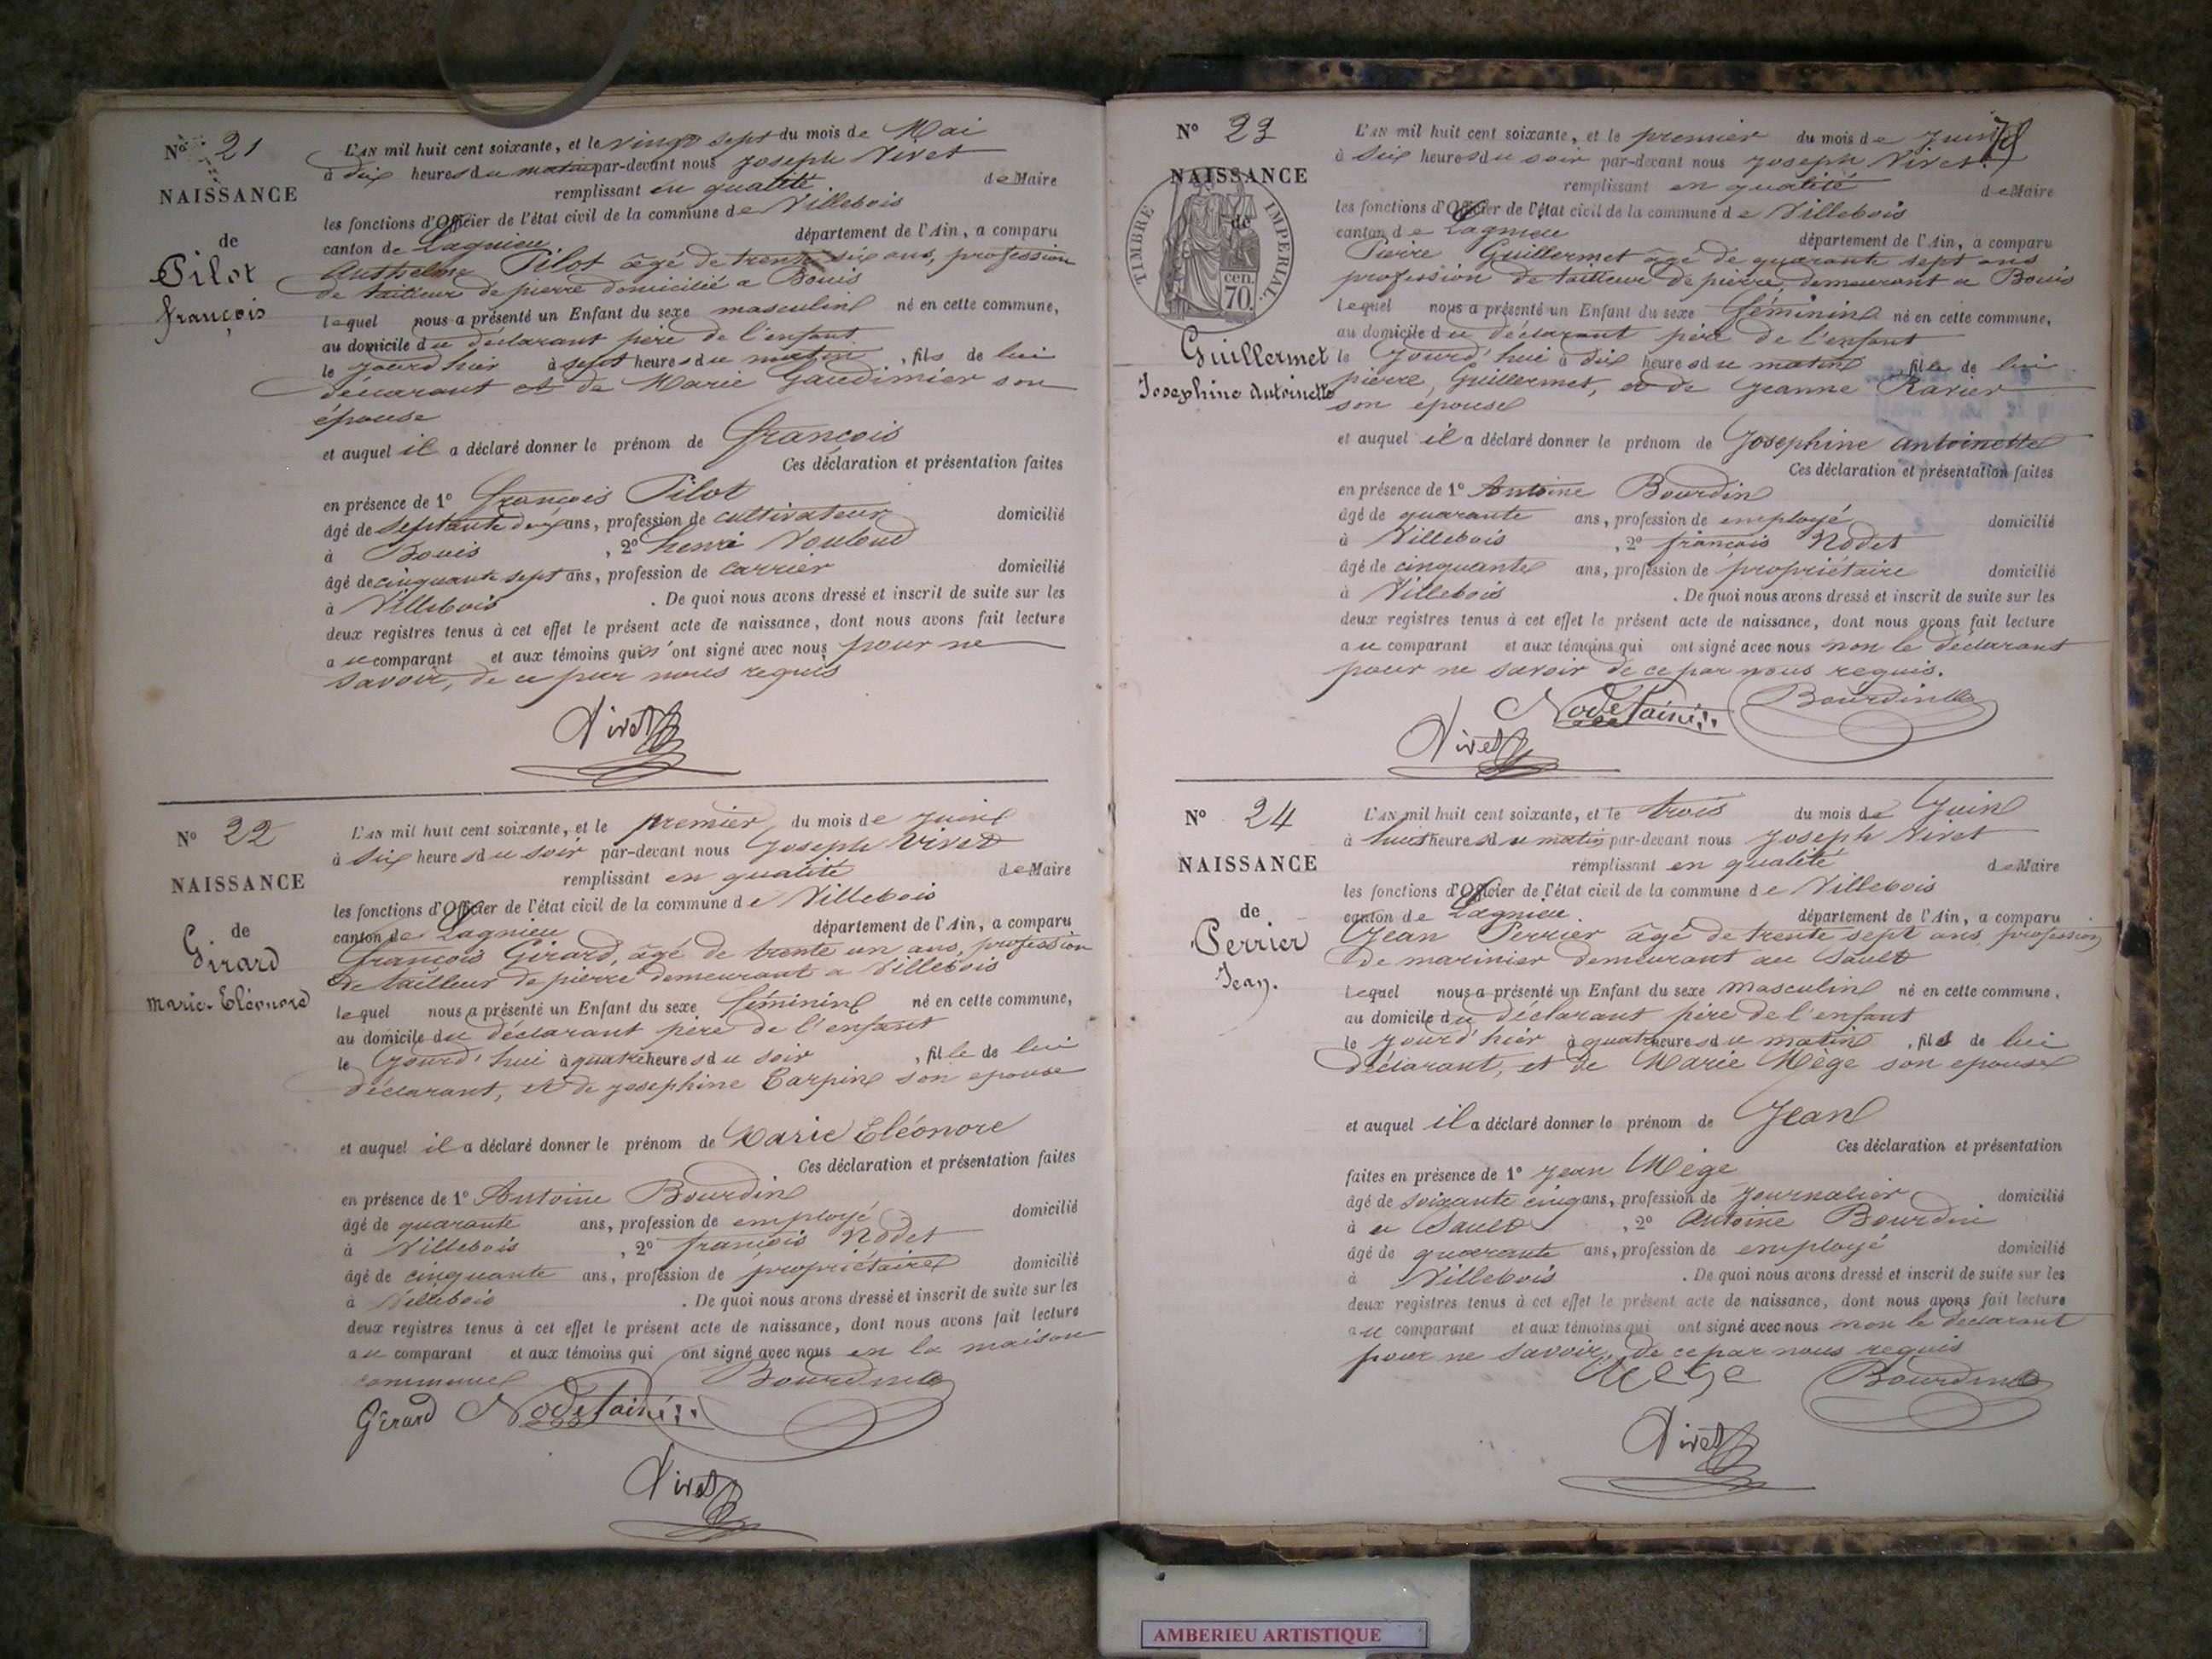 N° 21
NAISSANCE
de
Pilot
françois
L'AN mil huit cent soixante, et le vingt sept du mois de Mai
à dix heures du matin par-devant nous Joseph Vivet
remplissant en qualité de Maire
les fonctions d'Officier de l'état civil de la commune de Villebois
canton de Lagnieu département de l'Ain, a comparu
Anthelme Pilot âgé de trente six ans, profession
de tailleur de pierre domicilié a Bouis
lequel nous a présenté un Enfant du sexe masculin né en cette commune,
au domicile du déclarant père de l'enfant
le jourd hier à sept heures du matin, fils de lui
déclarant et de Marie Gaudimier son
épouse
et auquel il a déclaré donner le prénom de françois
Ces déclaration et présentation faites
en présence de 1° françois Pilot
âgé de septante deux ans, profession de cultivateur domicilié
à Bouis, 2° henri Vouloud
âgé de cinquante sept ans, profession de carrier domicilié
à Villebois. De quoi nous avons dressé et inscrit de suite sur les
deux registres tenus à cet effet le présent acte de naissance, dont nous avons fait lecture
au comparant et aux témoins qui n'ont signé avec nous pour ne
savoir, de ce par nous requis
Vivet
N° 22
NAISSANCE
de
Girard
Marie-Eléonore
L'AN mil huit cent soixante, et le premier du mois de Juin
à six heures du soir par-devant nous Joseph Vivet
remplissant en qualité de Maire
les fonctions d'Officier de l'état civil de la commune de Villebois
canton de Lagnieu département de l'Ain, a comparu
françois Girard, âgé de trente un ans, profession
de tailleur de pierre demeurant a Villebois
lequel nous a présenté un Enfant du sexe féminin né en cette commune,
au domicile du déclarant père de l'enfant
le jourd'hui à quatre heures du soir, fille de lui
déclarant, et de josephine Carpin son epouse
et auquel il a déclaré donner le prénom de Marie Eléonore
Ces déclaration et présentation faites
en présence de 1° Antoine Bourdin
âgé de quarante ans, profession de employé domicilié
à Villebois, 2° françois Nodet
âgé de cinquante ans, profession de propriétaire domicilié
à Villebois. De quoi nous avons dressé et inscrit de suite sur les
deux registres tenus à cet effet le présent acte de naissance, dont nous avons fait lecture
au comparant et aux témoins qui ont signé avec nous en la maison
commune
Bourdin
Girard Nodet ainé
Vivet
N° 23
NAISSANCE
de
TIMBRE IMPERIAL
cen.
70.
Guillermet
Josephine Antoinette
L'AN mil huit cent soixante, et le premier du mois de Juin
à six heures du soir par-devant nous Joseph Vivet
remplissant en qualité de Maire
les fonctions d'Officier de l'état civil de la commune de Villebois
canton de Lagnieu département de l'Ain, a comparu
Pierre Guillermet âgé de quarante sept ans
profession de tailleur de pierre, demeurant a Bouis
lequel nous a présenté un Enfant du sexe féminin né en cette commune,
au domicile du déclarant père de l'enfant
le jourd'hui à dix heures du matin, fille de lui
pierre, Guillermet, et de Jeanne Ravier
son épouse
et auquel il a déclaré donner le prénom de Josephine antoinette
Ces déclaration et présentation faites
en présence de 1° Antoine Bourdin
âgé de quarante ans, profession de employé domicilié
à Villebois, 2° françois Nodet
âgé de cinquante ans, profession de propriétaire domicilié
à Villebois. De quoi nous avons dressé et inscrit de suite sur les
deux registres tenus à cet effet le présent acte de naissance, dont nous avons fait lecture
au comparant et aux témoins qui ont signé avec nous non le déclarant
pour ne savoir de ce par nous requis.
Nodet ainé Bourdin
Vivet
N° 24
NAISSANCE
de
Perrier
Jean.
L'AN mil huit cent soixante, et le trois du mois de Juin
à huit heures du matin par-devant nous Joseph Vivet
remplissant en qualité de Maire
les fonctions d'Officier de l'état civil de la commune de Villebois
canton de Lagnieu. département de l'Ain, a comparu
Jean Perrier âgé de trente sept ans profession
de marinier demeurant au Sault
lequel nous a présenté un Enfant du sexe masculin né en cette commune,
au domicile du déclarant père de l'enfant
le jourd'hier à quatre heures du matin, fils de lui
déclarant, et de Marie Mège son epouse
et auquel il a déclaré donner le prénom de Jean
Ces déclaration et présentation
faites en présence de 1° jean Mège
âgé de soixante cinq ans, profession de journalier domicilié
à u Sault, 2° Antoine Bourdin
âgé de quarante ans, profession de employé domicilié
à Villebois. De quoi nous avons dressé et inscrit de suite sur les
deux registres tenus à cet effet le présent acte de naissance, dont nous avons fait lecture
au comparant et aux témoins qui ont signé avec nous non le déclarant
pour ne savoir, de ce par nous requis
Mege Bourdin
Vivet
AMBERIEU ARTISTIQUE